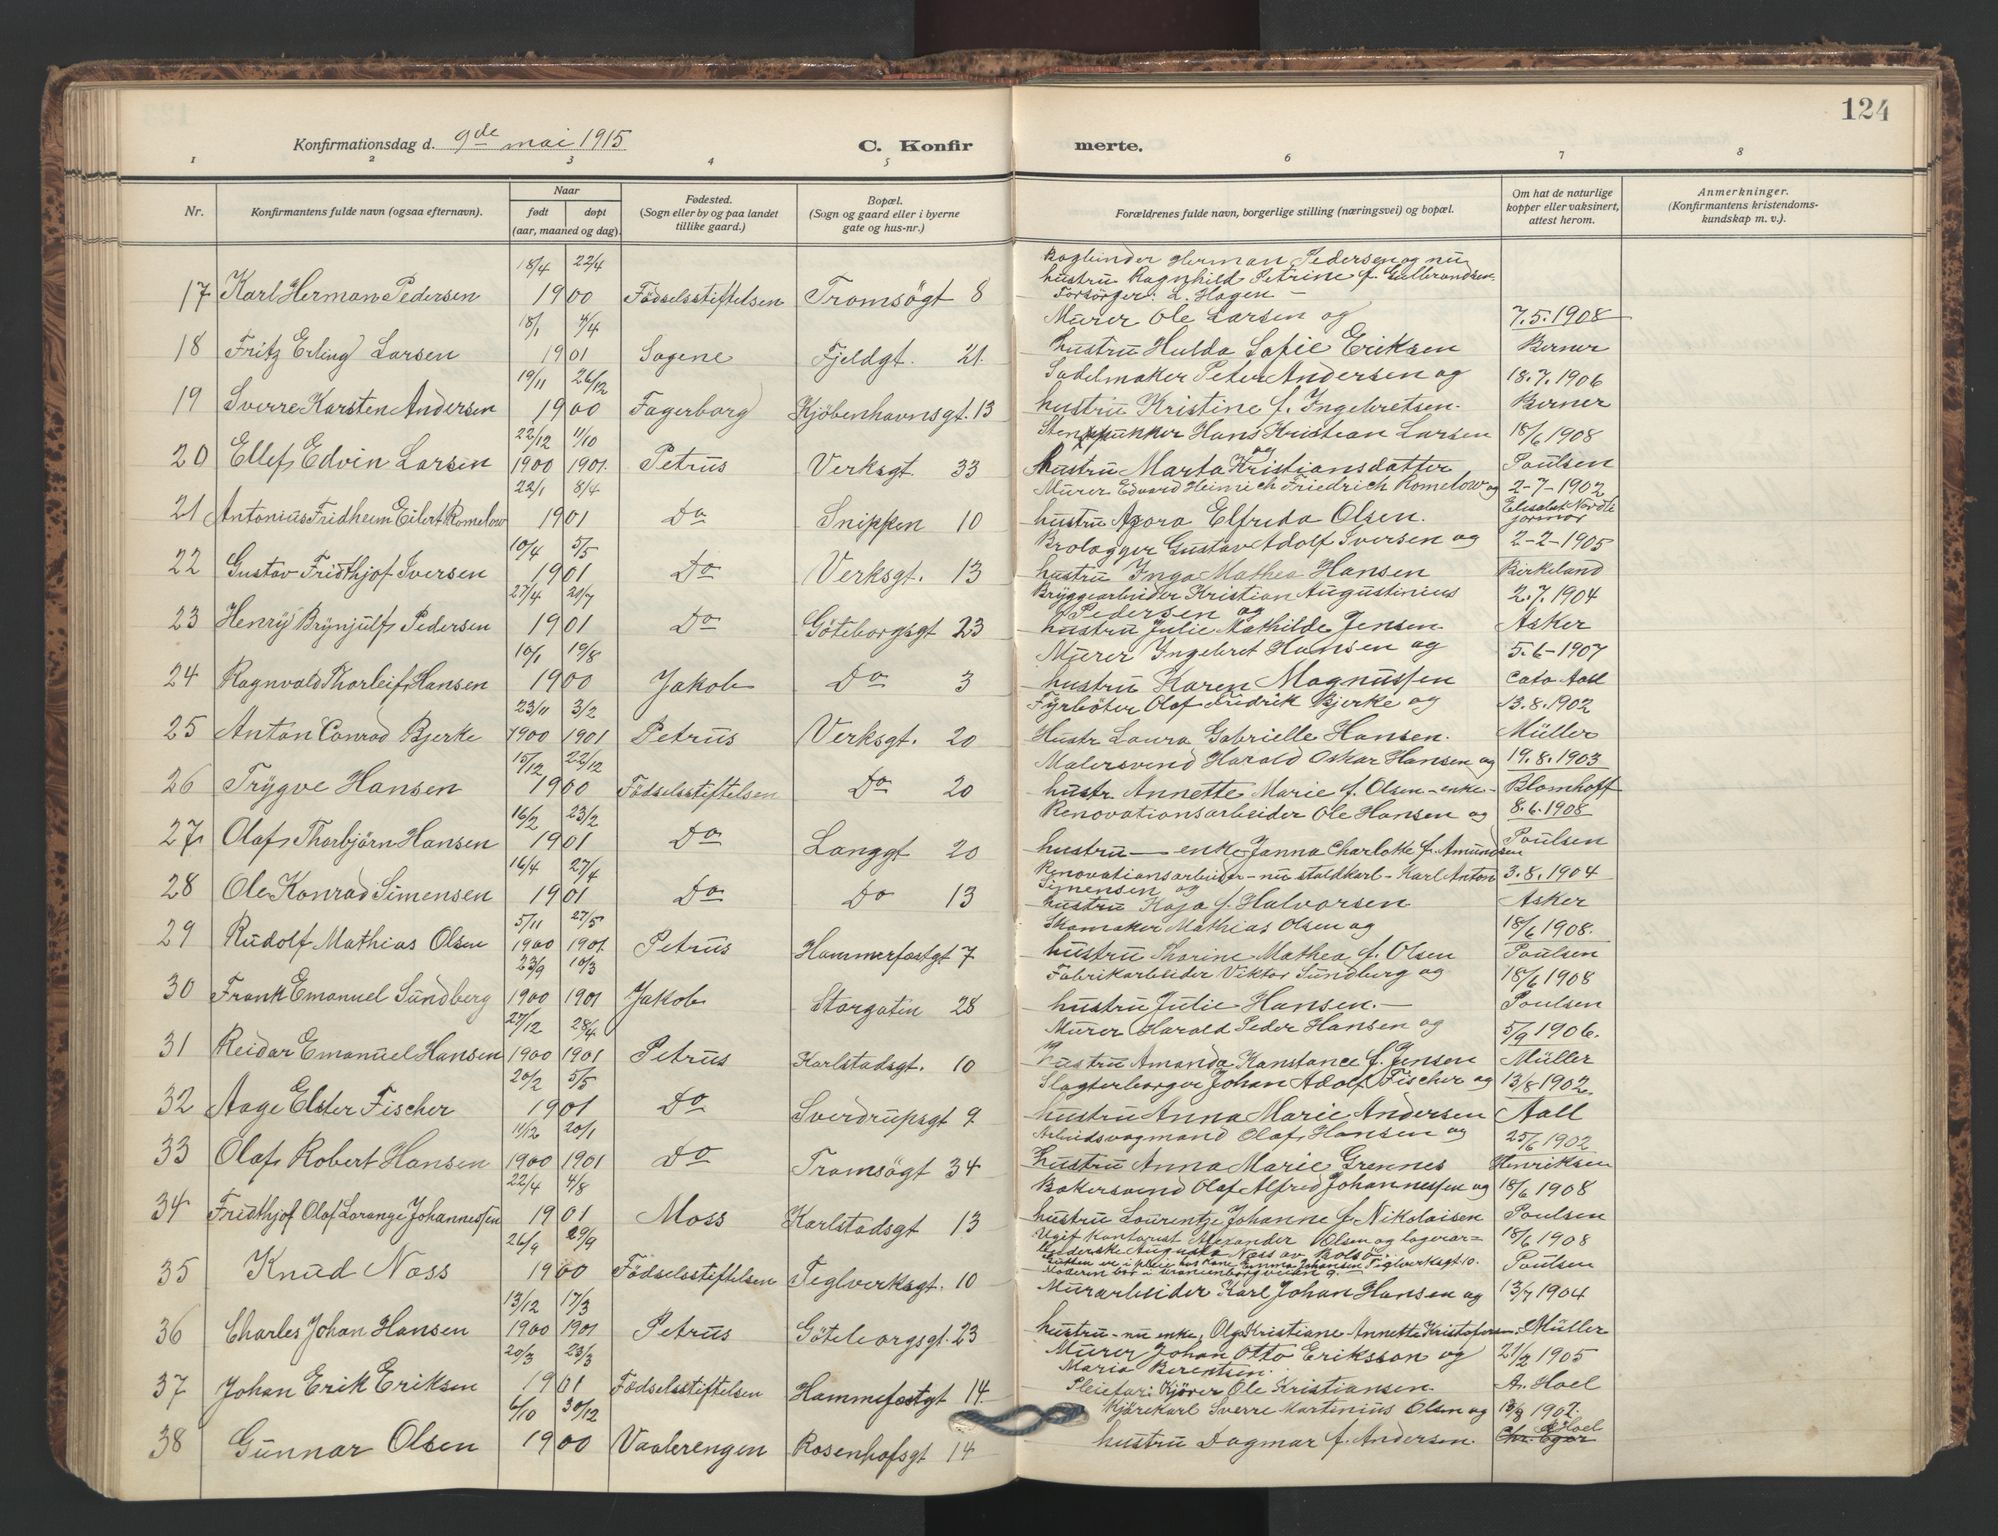 124
Konfirmationsdag d. 9de mai 1915
C. Konfirmerte.
1 2 3 4 5 6 7 8
Nr.
Konfirmantens fulde navn (ogsaa efternavn).
Naar
født døpt
(aar, maaned og dag).
Fødested.
(Sogn eller by og paa landet
tillike gaard.)
Bopæl.
(Sogn og gaard eller i byerne
gate og hus-nr.)
Forældrenes fulde navn, borgerlige stilling (næringsvei) og bopæl.
Om hat de naturlige
kopper eller vaksinert,
attest herom.
Anmerkninger.
(Konfirmantens kristendoms-
kundskap m. v.).
18/4 22/4 Bogbinder Herman Pedersen og nu
hustru Ragnhild Petrine f. Gulbrandsen
17 Karl Herman Pedersen 1900 Födselsstiftelsen Tromsögt 8 Forsörger: L. Hagen –
18/1 4/4 Murer Ole Larsen og 7.5.1908
18 Fritz Erling Larsen 1901 Sagene Fjeldgt. 21. hustru Hulda Sofie Eriksen Berner
19/11 26/12 Sadelmaker Peter Andersen og 18.7.1906
19 Sverre Karsten Andersen 1900 Fagerborg Kjöbenhavnsgt. 13 hustru Kristine f. Ingebretsen. Berner
22/12 11/10 Stenpukker Hans Kristian Larsen og 18/6 1908
20 Ellef Edvin Larsen 1900 1901. Petrus Verksgt. 33 hustru Marta Kristiansdatter Poulsen
22/1 8/4 Murer Edvard Heinrich Friedrich Romelow og 2-7-1902
21 Antonius Fridheim Eilert Romelow 1901 Do Snippen 10 hustru Agora Elfrida Olsen. Elisabet Nordli jormor
10/4 5/5 Brolægger Gustav Adolf Iversen og 2-2-1905
22 Gustav Fridthjof Iversen 1901 Do Verksgt. 13 hustru Inga Mathea Hansen Birkeland
27/4 21/7 Bryggearbeider Kristian Augustinius 2.7.1904
Pedersen og
23 Henry Brynjulf Pedersen 1901 Do Göteborgsgt 23 hustru Julie Mathilde Jensen Asker
10/1 19/8 Murer Ingebret Hansen og 5.6-1907
24 Ragnvald Thorleif Hansen 1900 Jakob Do 3 hustru Karen Magnussen Cato Aall
23/11 3/2 Fyrböter Olaf Fredrik Bjerke og 13.8.1902
25 Anton Conrad Bjerke 1900 1901 Petrus Verksgt. 20 Hustr Laura Gabrielle Hansen. Müller
15/12 22/12 Malersvend Harald Oskar Hansen og 19.8.1903
26 Trygve Hansen 1900 Födselsstiftelsen Do 20 hustr Annette Marie f. Olsen – enke – Blomhoff
16/2 23/2 Renovationsarbeider Ole Hansen og 8.6.1908
27 Olaf Thorbjörn Hansen 1901 Do Langgt 20 hustru – enke Janna Charlotte f. Amundsen Poulsen
16/4 27/4 Renovationsarbeider – nu staldkarl – Karl Anton 3.8.1904
Simensen og
28 Ole Konrad Simensen 1901 Do Do 13 hustru Kaja f. Halvorsen Asker
5/11 27/5 Skomaker Mathias Olsen og 18/6 1908.
29 Rudolf Mathias Olsen 1900 1901. Petrus Hammerfestgt 7 hustru Thorine Mathea f. Olsen Poulsen
23/9 10/3 Fabrikarbeider Viktor Sundberg og 18/6 1908
30 Frank Emanuel Sundberg 1900 1901 Jakob Storgaten 28 hustru Julie Hansen. – Poulsen
27/12 28/4 Murer Harald Peder Hansen og 5/9 1906.
31 Reidar Emanuel Hansen 1900 1901 Petrus Karlstadsgt. 10 hustru Amanda Konstance f. Jensen Müller
20/2 5/5 Slagterborger Johan Adolf Fischer og 13/8 1902.
32 Aage Elster Fischer 1901 Do Sverdrupsgt 9 hustru Anna Marie Andersen Aall
11/12 20/1 Arbeidsvogmand Olaf Hansen og 25/6 1902
33 Olaf Robert Hansen 1900 1901 Do Tromsögt 34 hustru Anna Marie Grennes Henriksen
22/4 4/8 Bakersvend Olaf Alfred Johannessen og 18/6 1908
34 Fridthjof Olaf Lorange Johannessen 1901 Moss Karlstadsgt 13 hustru Lourentze Johanne f. Nikolaisen Poulsen
26/9 29/9 Ugift Kontorist Alexander Olsen og lagerar= 18/6 1908
beiderske Augusta Noss av Bolsö.
35 Knud Noss 1900 Födselsstiftelsen Teglverksgt. 10 Gutten er i pleie hos Kone Emma Johansen Teglverksgt 10. Poulsen
Moderen bor i Uranienborgveien 9.
13/12 17/3 Murarbeider Karl Johan Hansen og 13/7 1904
36 Charles Johan Hansen 1900 1901 Petrus Göteborgsgt. 23 hustru – nu enke, Olga Kristiane Annette Kristofersen. Müller
20/3 23/3 Murer Johan Otto Eriksson og 21/2 1905
Maria Berentsen.
37 Johan Erik Eriksen 1901 Födselsstiftelsen Hammefestgt 14. Pleiefar: Kjörer Ole Kristiansen. A. Hoel
6/10 30/12 Kjörekarl Sverre Martinius Olsen og 13/8 1902.
38 Gunnar Olsen 1900 Vaalerengen Rosenhofsgt 14 hustru Dagmar f. Andersen. Hoel